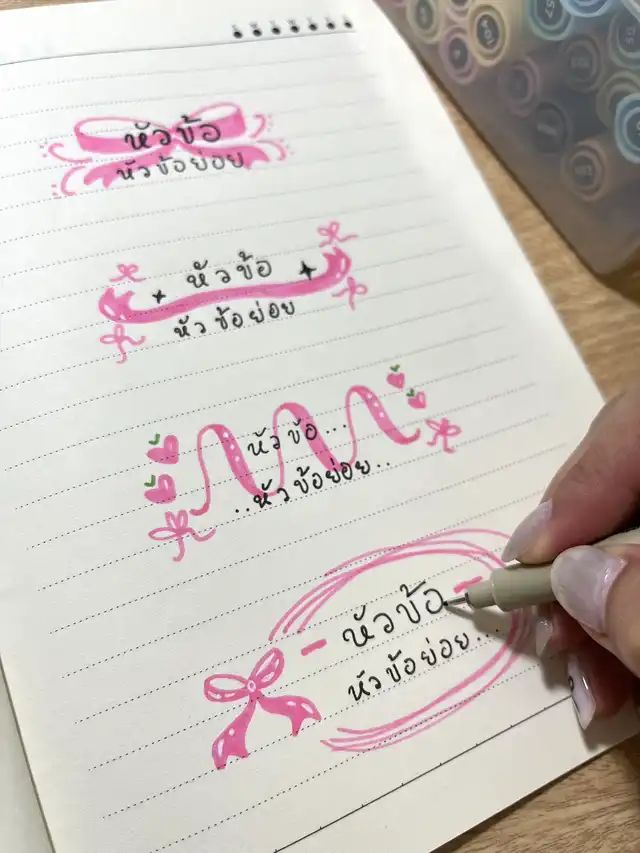 หัวข้อ
หัวข้อย่อย
หัวข้อ
หัวข้อย่อย
หัวข้อ...
..หัวข้อย่อย..
หัวข้อ
หัวข้อย่อย...